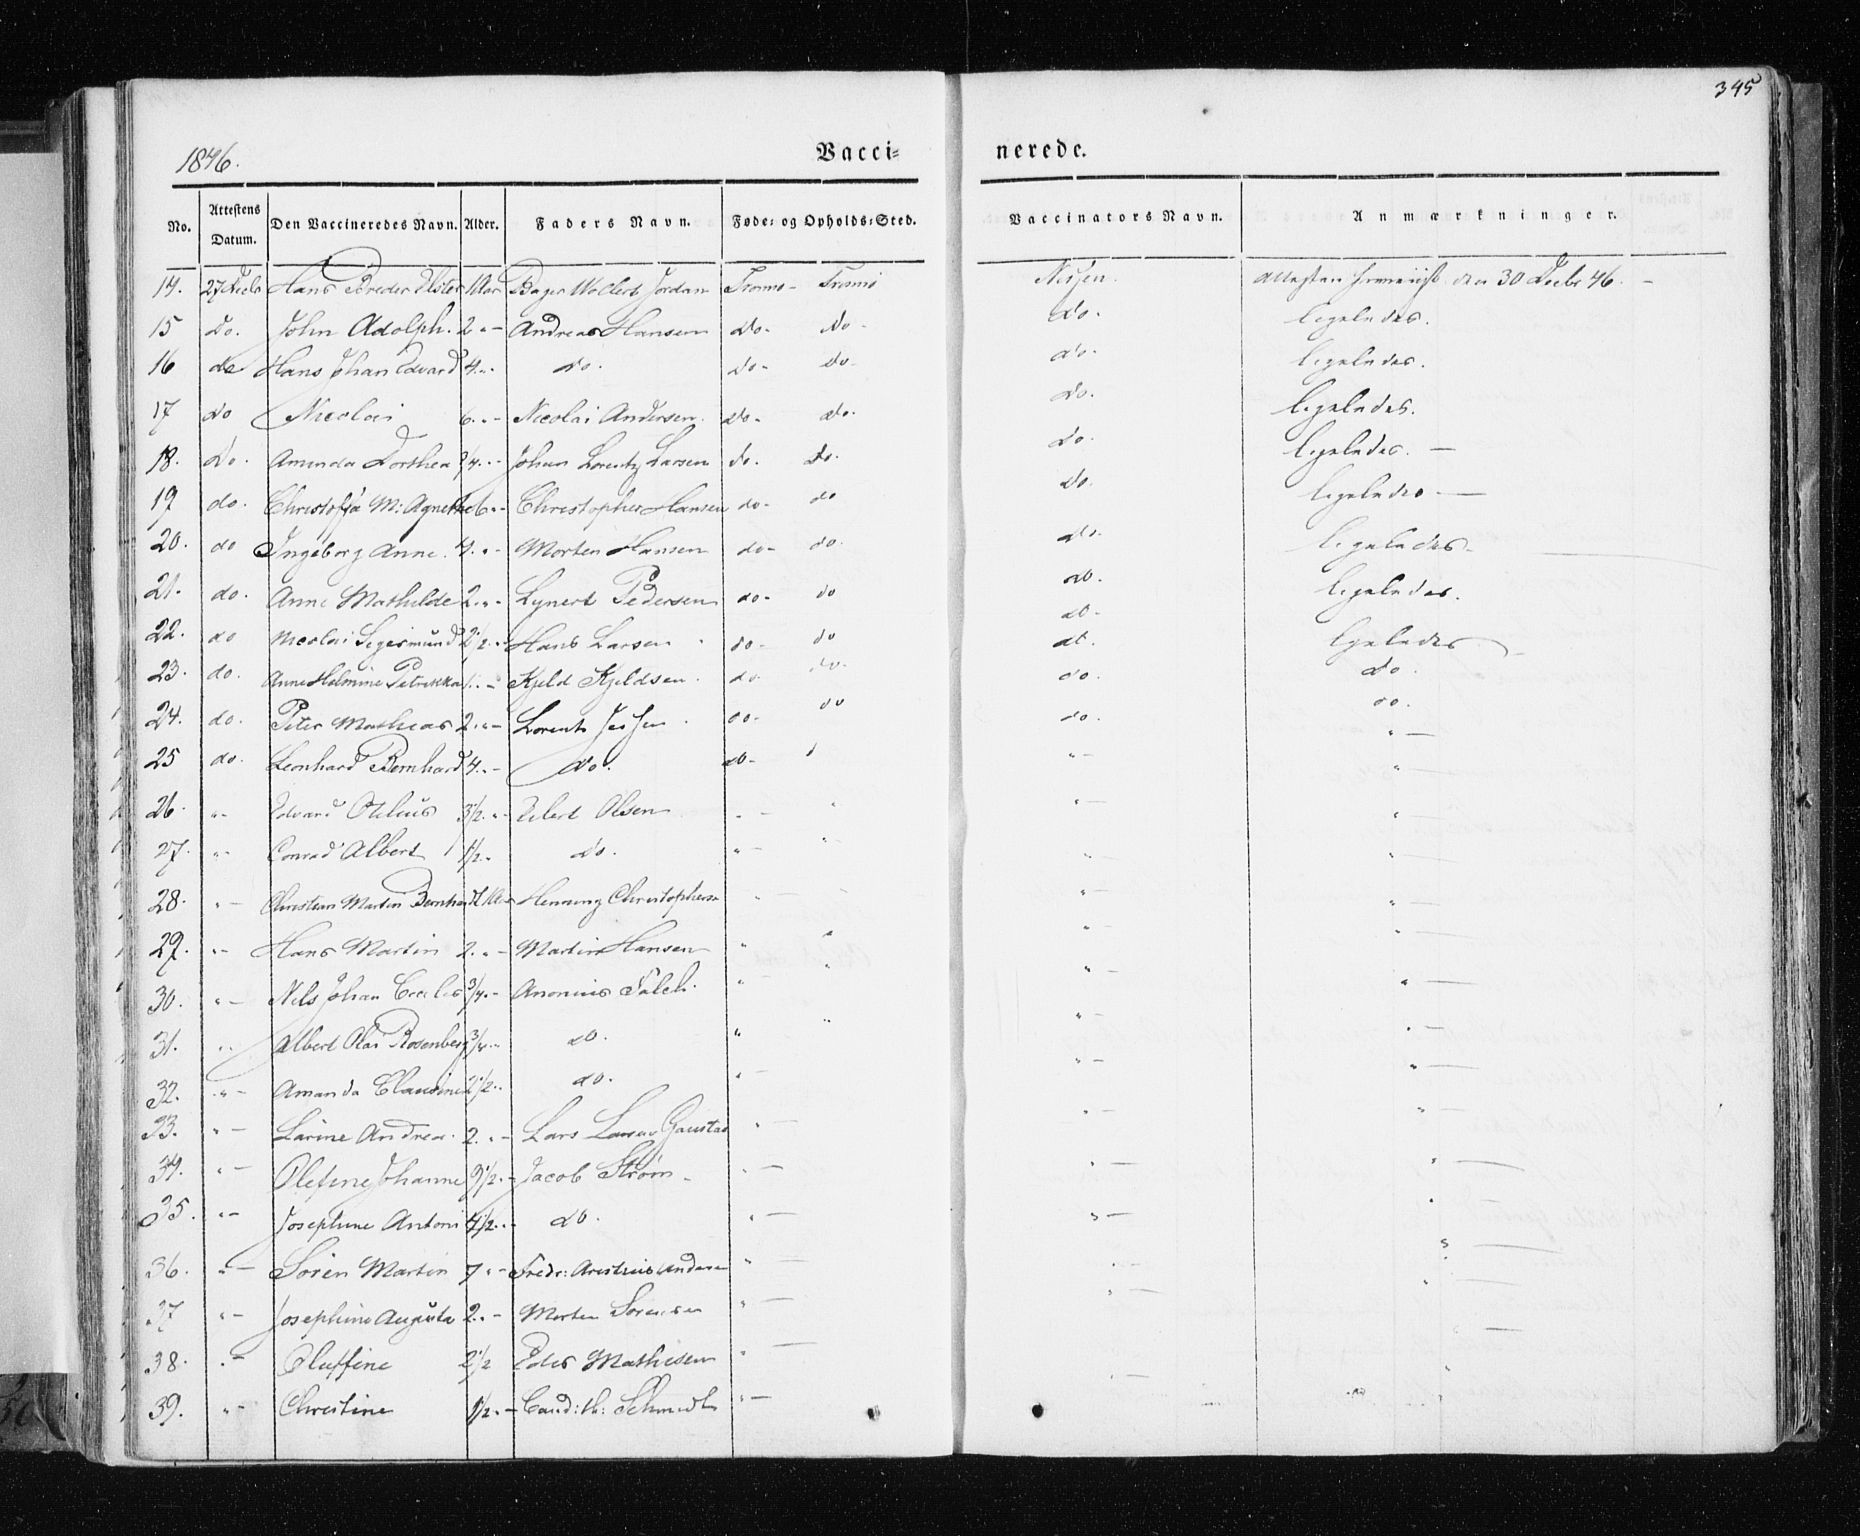 345
1846.
Vacci= nerede.
No. Attestens Datum. Den Vaccineredes Navn. Alder. Faders Navn. Føde= og Opholds=Sted. Vaccinators Navn. Anmærkninger.
14. 27 Decbr Hans Breder Elster 1 Aar Bager Wollert Jordan Tromsø - Tromsø Attesten den 30 Decbr 46. -
15 Do. John Adolph. 2 " - Andreas Hansen do - do - do. ligeledes.
16 do Hans Johan Edvard 4. " - do. do - do - do. ligeledes.
17 do Nicolai 6. " - Nicolai Andersen. do - do. do. ligeledes.
18. Do. Amanda Dorthea 3/4. " - Johan Lorentz Larsen do. do. do. ligeledes. -
19 do. M: Agnethe 6 " - Christopher Hansen do - do do. ligeledes - -
20. do Ingeborg Anne. 4. " - Morten Hansen do - do. do. ligeledes -
21. do. Anne Mathilde 2. " - Lynert Pedersen do - do do. ligeledes.
22. do Nicolai Sigismund 2 1/2. " - Hans Larsen do - do do - do. ligeledes
23. do. Anne Helmine Petrikka 1. " - Kjeld Kjeldsen. do do. do. do.
24. do. Peter Mathias 2. " - Lorents do - do do. do.
25 do. Leonhard Bernhard 4. " - do. do - " - " -
26. " - Edvard Otelius 3 1/2. " - Eilert Olsen " - " " - " -
27. " - Conrad Albert 1 1/2. " do. " - " " - " -
28. " - Christian Martin Henning Christophersen " - " - " -
29. " - Hans Martin 2. " - Martin Hansen " " " - " -
30. " - Nils Johan 3/4. " - Falch. " - " " - " -
31. " - Albert Olai Rosenberg 3/4. " - do. " " " - " -
32. " - Amanda Claudine 2 1/2. " do. " - " - " -
33. " - Larine Andrea. 2. " - Lars Larsen Gaustad " - " - " -
34. " - Olefine Johanne 9 1/2. " - Jacob Strøm - " - " - " -
35. " - Josephine Antoni 4 1/2. " - do. " - " - "
36. " - Søren Martin 7 " - Fredr: Andersen " - " - " -
37 " - Josephine Augusta 2. " - Morten Sørensen " - " - " -
38. " - Oluffine 2 1/2 Mathisen " - -
39. " - Christine 1 1/2. " - Cand: th: Schmidt " - " - "